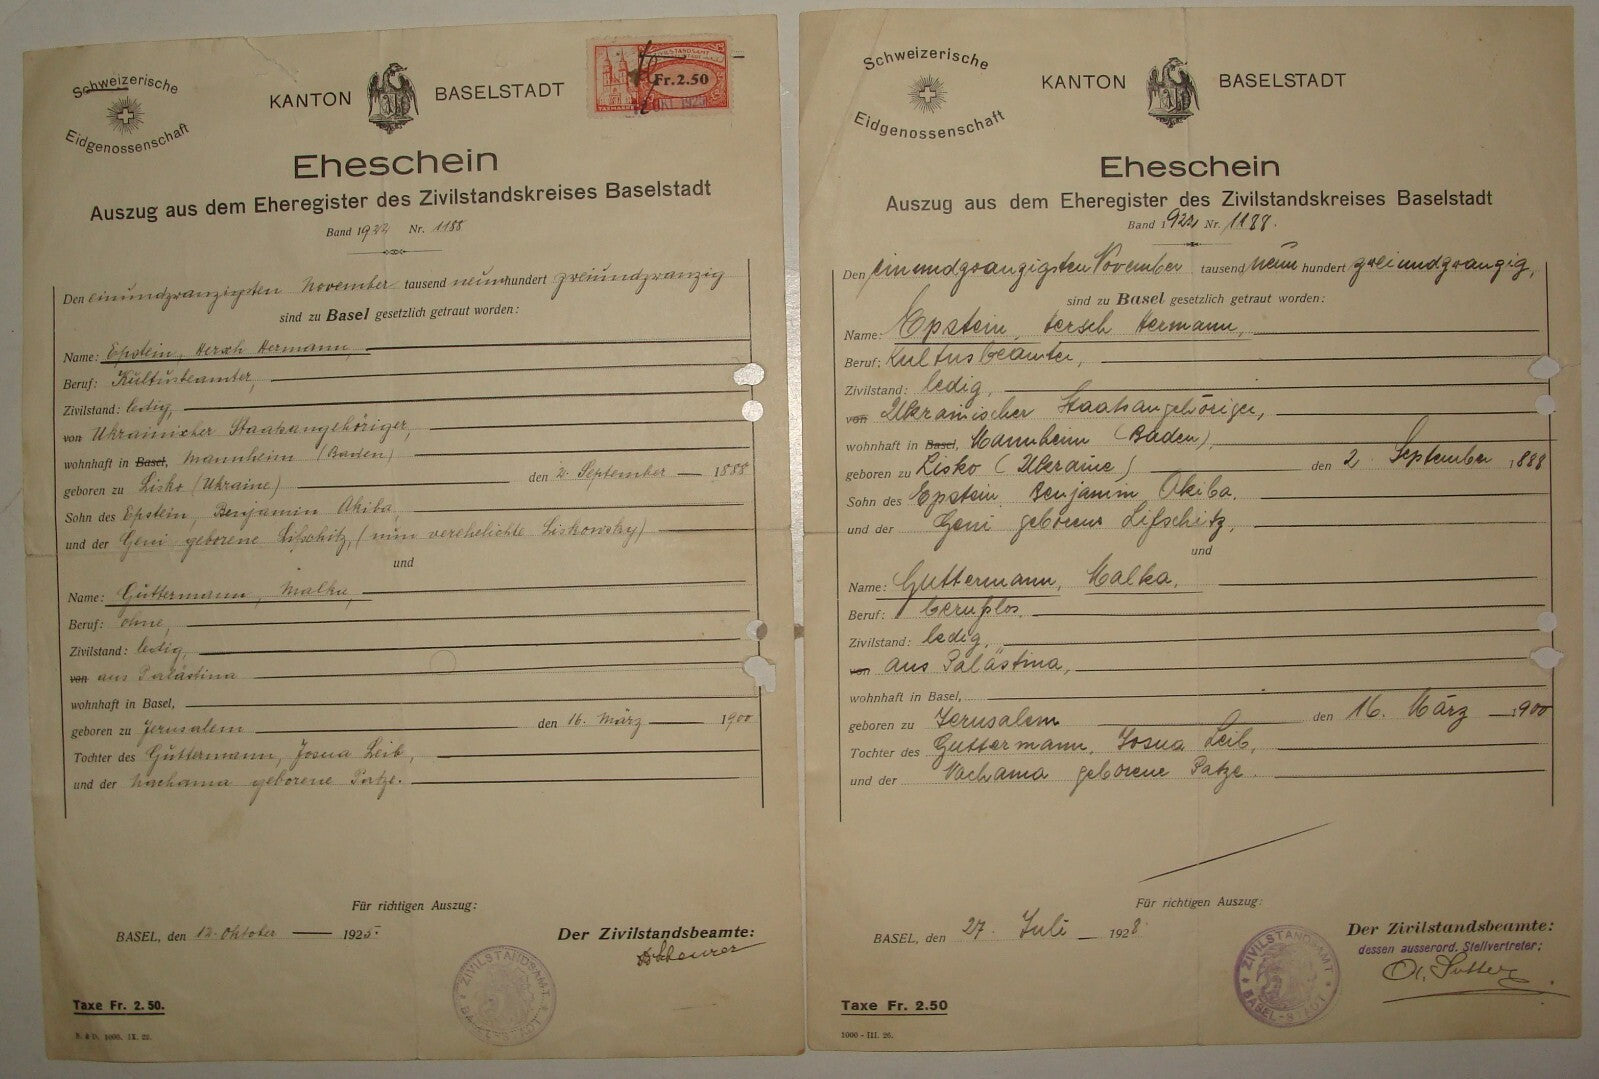 Schweizerische
Eidgenossenschaft
KANTON BASELSTADT
Fr. 2.50
Eheschein
Auszug aus dem Eheregister des Zivilstandskreises Baselstadt
Band 1922 Nr. 1188
Den einundzwanzigsten November tausend neunhundert zweiundzwanzig
sind zu Basel gesetzlich getraut worden:
Name: Epstein, Hersch Hermann,
Beruf: Kultusbeamter,
Zivilstand: ledig,
von Ukrainischer Staatsangehöriger,
wohnhaft in Basel, Mannheim (Baden)
geboren zu Lisko (Ukraine) den 2. September 1888
Sohn des Epstein, Benjamin Akiba,
und der Geni geborene Lifschitz, (nun verehelichte Liskowsky)
und
Name: Guttermann, Malka,
Beruf: ohne,
Zivilstand: ledig,
von aus Palästina
wohnhaft in Basel,
geboren zu Jerusalem den 16. März 1900
Tochter des Guttermann, Josua Leib,
und der Nachama geborene Patze.
Für richtigen Auszug:
BASEL, den 12. Oktober 1925.
Der Zivilstandsbeamte:
ZIVILSTANDSAMT BASEL-STADT
Taxe Fr. 2.50.
Schweizerische
Eidgenossenschaft
KANTON BASELSTADT
Eheschein
Auszug aus dem Eheregister des Zivilstandskreises Baselstadt
Band 1922 Nr. 1188.
Den einundzwanzigsten November tausend neun hundert zweiundzwanzig,
sind zu Basel gesetzlich getraut worden:
Name: Epstein, Hersch Hermann,
Beruf: Kultusbeamter,
Zivilstand: ledig,
von Ukrainischer Staatsangehöriger,
wohnhaft in Basel, Mannheim (Baden),
geboren zu Lisko (Ukraine) den 2. September 1888
Sohn des Epstein, Benjamin Akiba,
und der Geni geborene Lifschitz,
und
Name: Guttermann, Malka,
Beruf: berufslos.
Zivilstand: ledig,
von aus Palästina,
wohnhaft in Basel,
geboren zu Jerusalem den 16. März 1900
Tochter des Guttermann, Josua Leib,
und der Nachama geborene Patze.
Für richtigen Auszug:
BASEL, den 27. Juli 1928.
Der Zivilstandsbeamte:
dessen ausserord. Stellvertreter:
ZIVILSTANDSAMT BASEL-STADT
Taxe Fr. 2.50
1000 - III. 26.